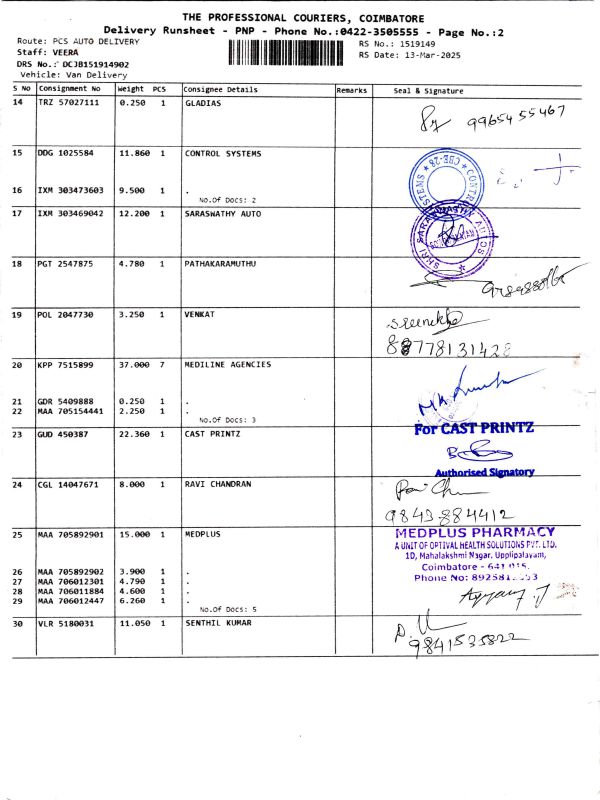 THE PROFESSIONAL COURIERS, COIMBATORE
Delivery Runsheet - PNP - Phone No.:0422-3505555 - Page No.:2
Route: PCS AUTO DELIVERY
RS No.: 1519149
Staff: VEERA
RS Date: 13-Mar-2025
DRS No.: DCJB151914902
Vehicle: Van Delivery
S No Consignment No Weight PCS Consignee Details Remarks Seal & Signature
14 TRZ 57027111 0.250 1 GLADIAS
9965455467
15 DDG 1025584 11.860 1 CONTROL SYSTEMS
CBE-28
16 IXM 303473603 9.500 1 .
No.Of Docs: 2
17 IXM 303469042 12.200 1 SARASWATHY AUTO
SHRI SARASWATHY AUTOS
18 PGT 2547875 4.780 1 PATHAKARAMUTHU
19 POL 2047730 3.250 1 VENKAT
88778131428
20 KPP 7515899 37.000 7 MEDILINE AGENCIES
21 GDR 5409888 0.250 1 .
22 MAA 705154441 2.250 1 .
No.Of Docs: 3
23 GUD 450387 22.360 1 CAST PRINTZ
For CAST PRINTZ
Authorised Signatory
24 CGL 14047671 8.000 1 RAVI CHANDRAN
9843884412
25 MAA 705892901 15.000 1 MEDPLUS
MEDPLUS PHARMACY
A UNIT OF OPTIVAL HEALTH SOLUTIONS PVT. LTD.
1D, Mahalakshmi Nagar, Upplipalayam,
Coimbatore - 641 015.
Phone No:
26 MAA 705892902 3.900 1 .
27 MAA 706012301 4.790 1 .
28 MAA 706011884 4.600 1 .
29 MAA 706012447 6.260 1 .
No.Of Docs: 5
30 VLR 5180031 11.050 1 SENTHIL KUMAR
9841535822